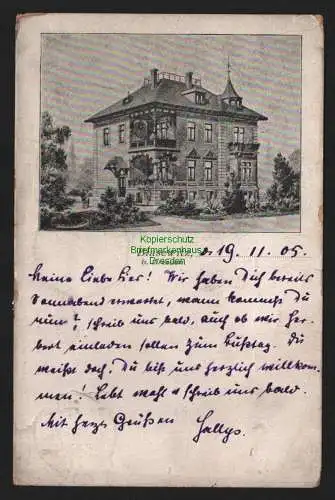 Kopierschutz
Briefmarken
Zirnstein
Blasewitz, d. 19. 11. 05.
Meine Liebe! Wir haben Dich bereits
Sonnabend erwartet, wann kommst Du
nun? schreib uns bald, auch ob wir Her-
bert einladen sollen zum Bußtag. Du
weißt doch, Du bist uns herzlich willkom-
men! Lebt wohl u schreib uns bald.
Mit herzl Grüßen